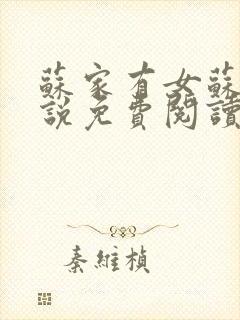 蘇家有女蘇
說免費閱讀
秦維楨